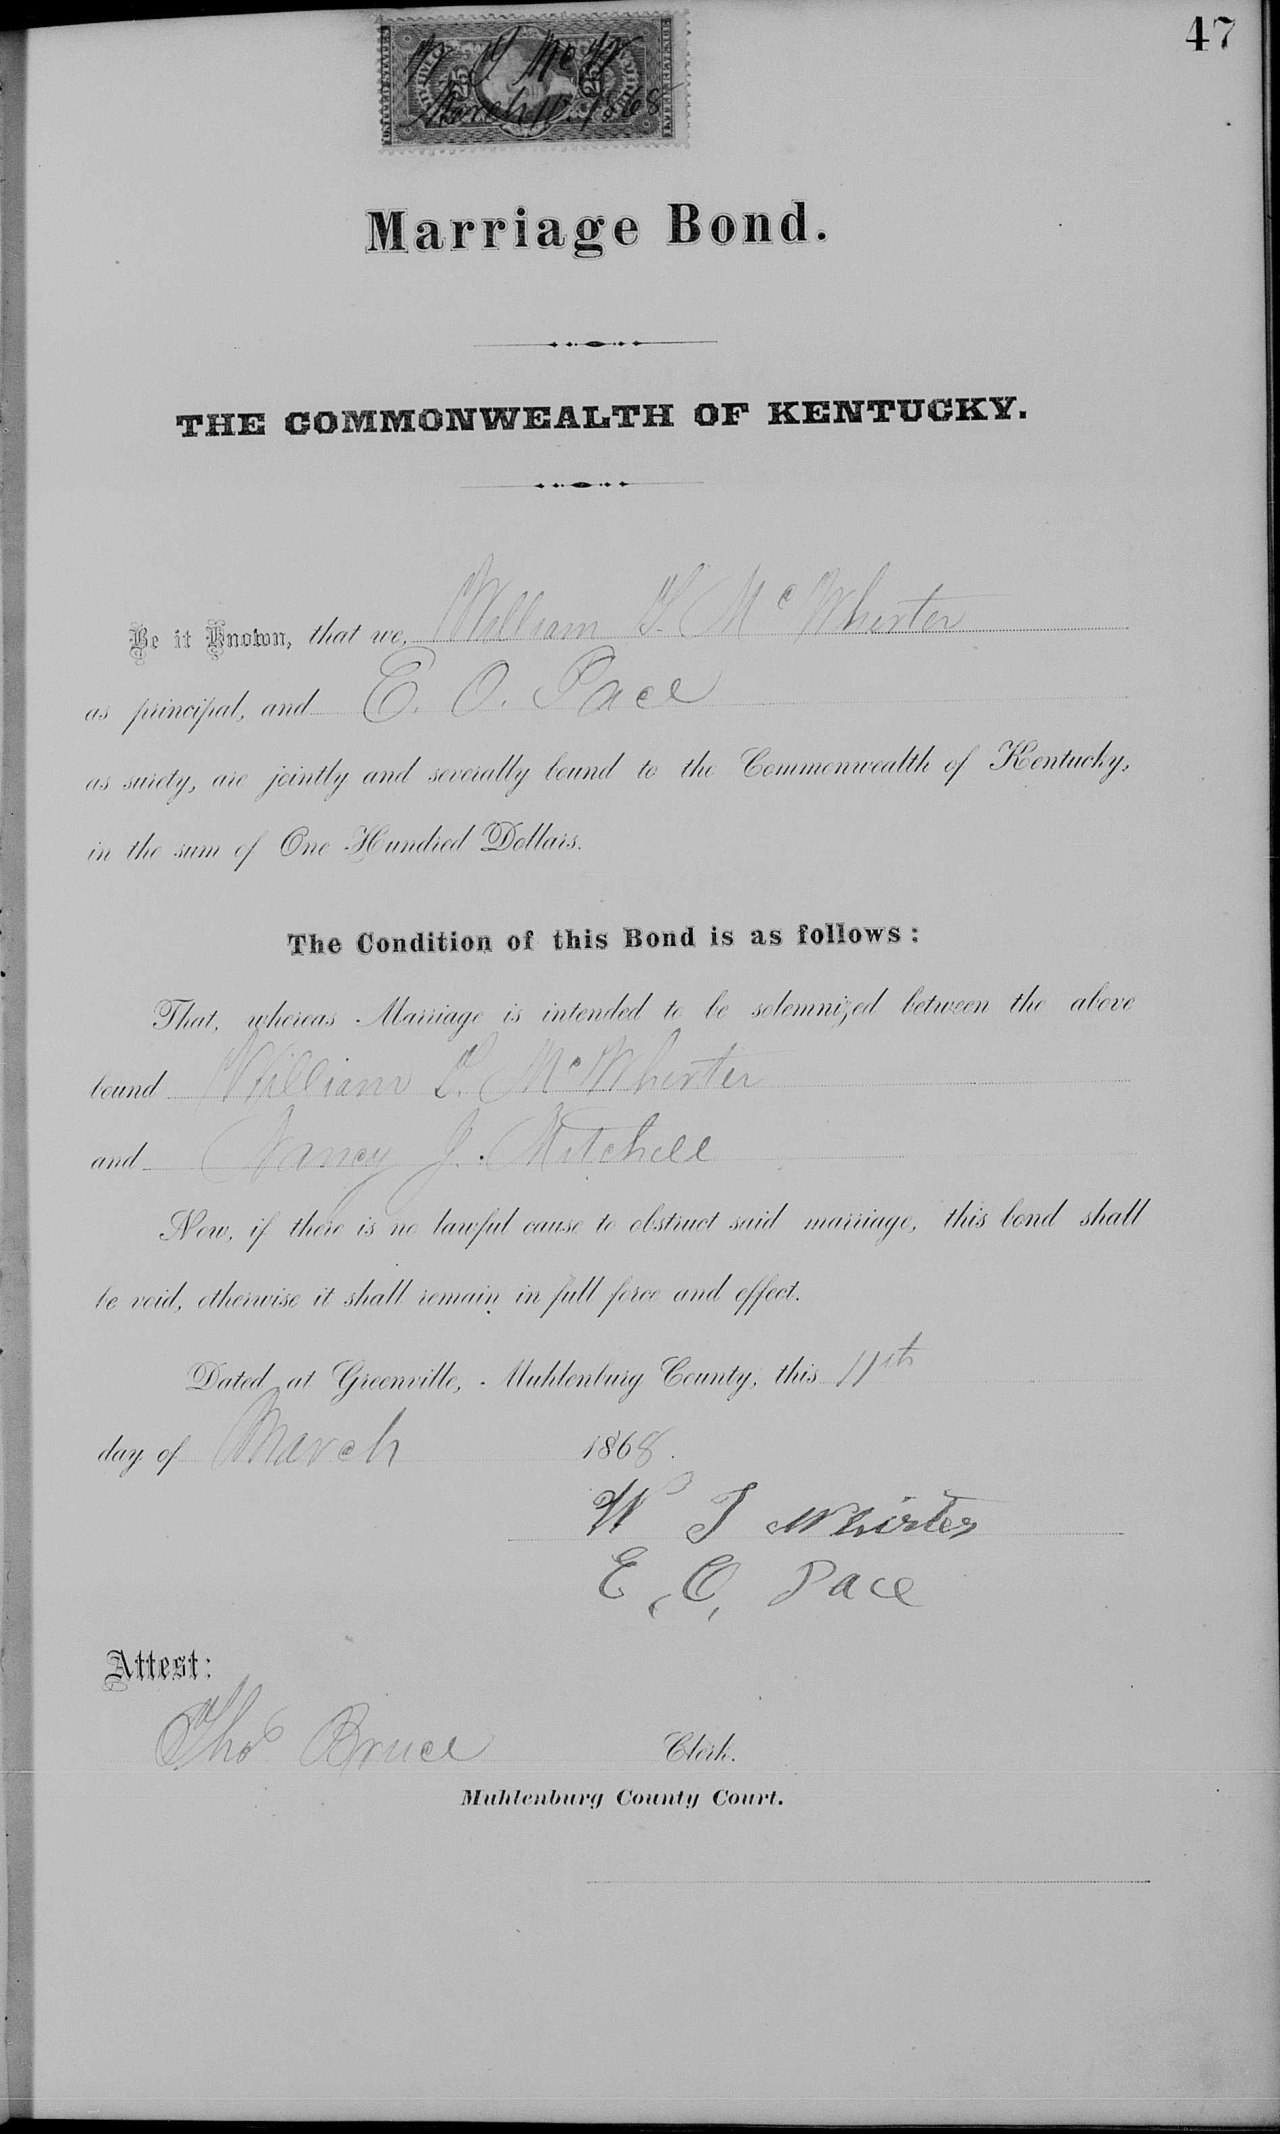 47
W T McW
March 11 1868
25 25
Marriage Bond.
THE COMMONWEALTH OF KENTUCKY.
Be it Known, that we, William T. McWhirter
as principal, and E. O. Pace
as surety, are jointly and severally bound to the Commonwealth of Kentucky,
in the sum of One Hundred Dollars.
The Condition of this Bond is as follows:
That, whereas Marriage is intended to be solemnized between the above
bound William T. McWhirter
and Nancy J. Mitchell
Now, if there is no lawful cause to obstruct said marriage, this bond shall
be void, otherwise it shall remain in full force and effect.
Dated at Greenville, Muhlenburg County, this 11th
day of March 1868.
W T McWhirter
E. O. Pace
Attest:
Thos Bruce Clerk.
Muhlenburg County Court.